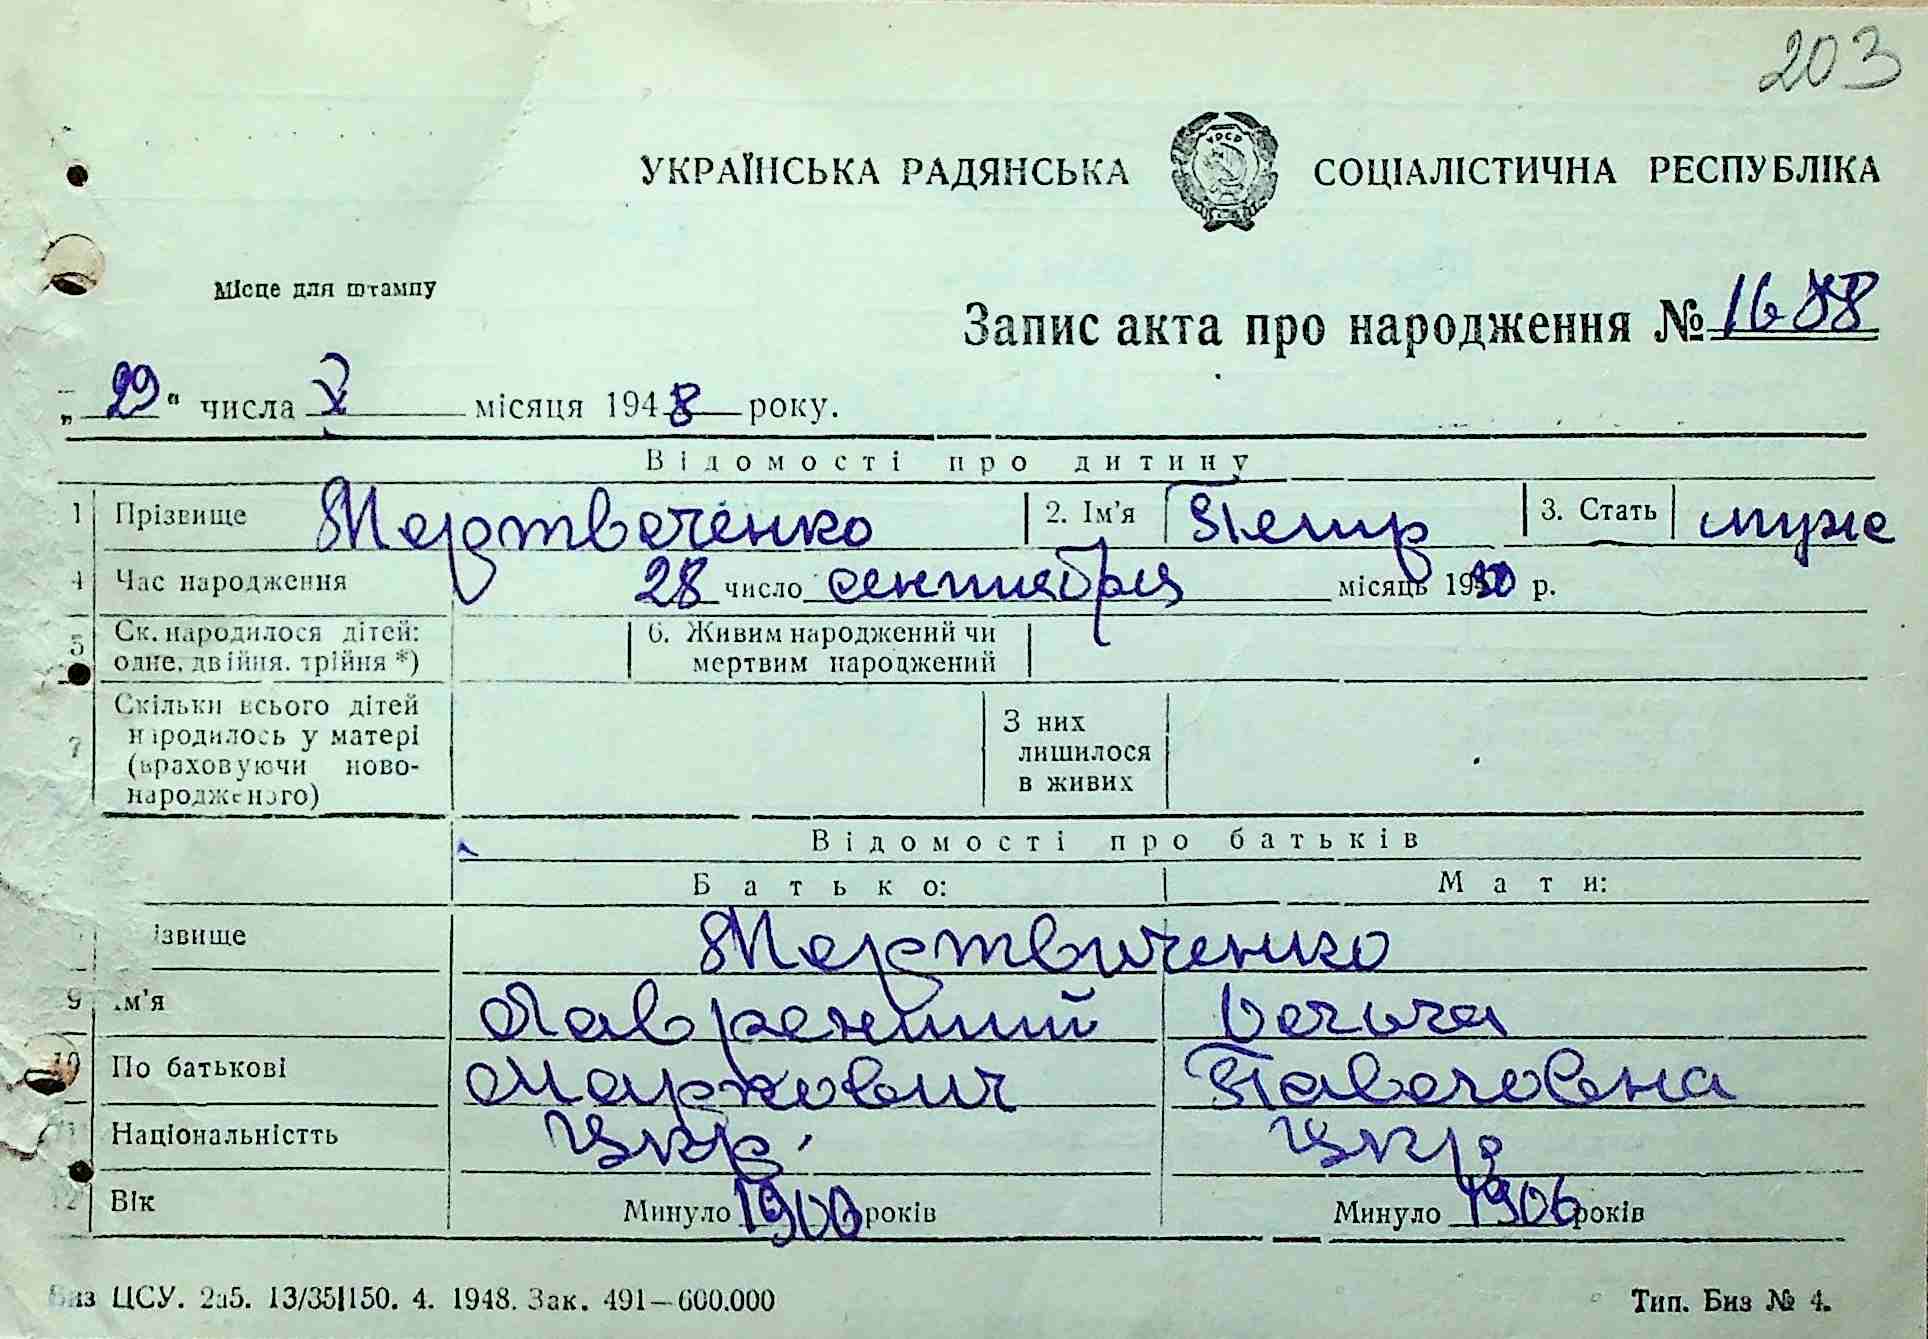 203
УКРАЇНСЬКА РАДЯНСЬКА СОЦІАЛІСТИЧНА РЕСПУБЛІКА
Місце для штампу
Запис акта про народження № 1688
„29" числа X місяця 1948 року.
Відомості про дитину
1 Прізвище Мертвеченко 2. Ім'я Петр 3. Стать муж
4 Час народження 28 число сентября місяць 1930 р.
5 Ск. народилося дітей: 6. Живим народжений чи
одне, двійня, трійня *) мертвим народжений
Скільки всього дітей З них
7 народилось у матері лишилося
(враховуючи ново- в живих
народженого)
Відомості про батьків
Батько: Мати:
ізвище Мертвиченко
9 ім'я Лаврентий
10 По батькові Маркович Павловна
11 Національністть Укр. Укр
12 Вік Минуло 1900 років Минуло 1906 років
Биз ЦСУ. 2а5. 13/35|150. 4. 1948. Зак. 491—600.000 Тип. Биз № 4.